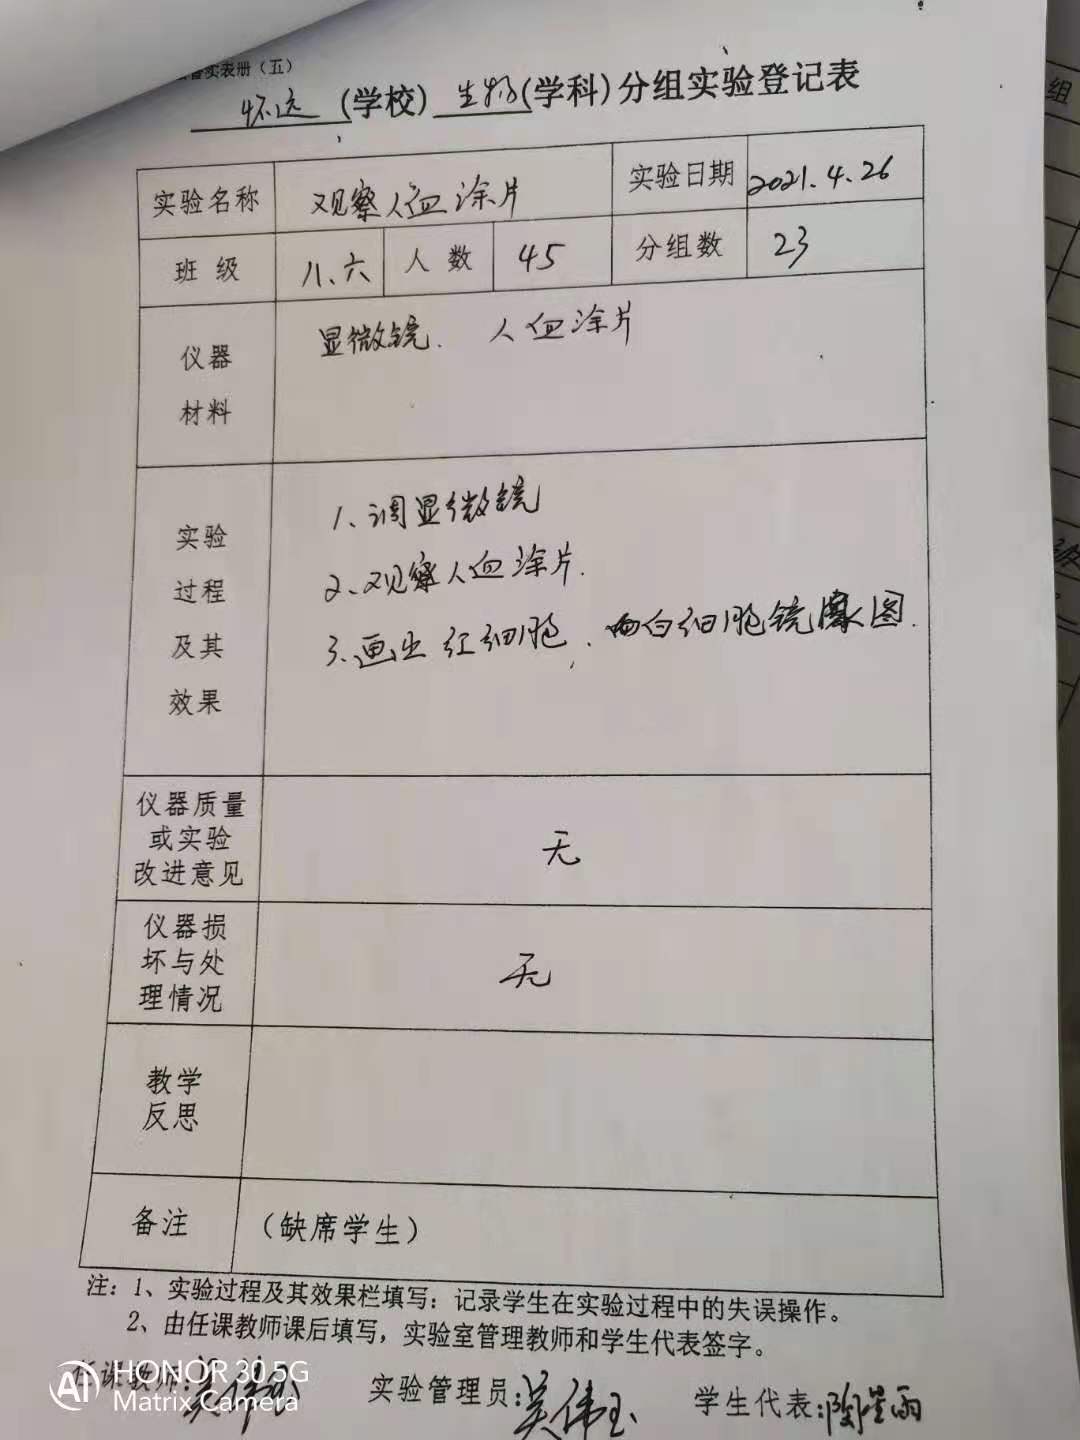 实表册（五）
怀远（学校）生物（学科）分组实验登记表
实验名称 观察人血涂片 实验日期 2021.4.26
班级 八、六 人数 45 分组数 23
仪器
材料
显微镜. 人血涂片
实验
过程
及其
效果
1、调显微镜
2、观察人血涂片.
3、画出红细胞、白细胞镜像图.
仪器质量
或实验
改进意见
无
仪器损
坏与处
理情况
无
教学
反思
备注 （缺席学生）
注：1、实验过程及其效果栏填写：记录学生在实验过程中的失误操作。
2、由任课教师课后填写，实验室管理教师和学生代表签字。
任课教师：吴伟玉 实验管理员：吴伟玉 学生代表：陶 雨
AI HONOR 30 5G
Matrix Camera
组